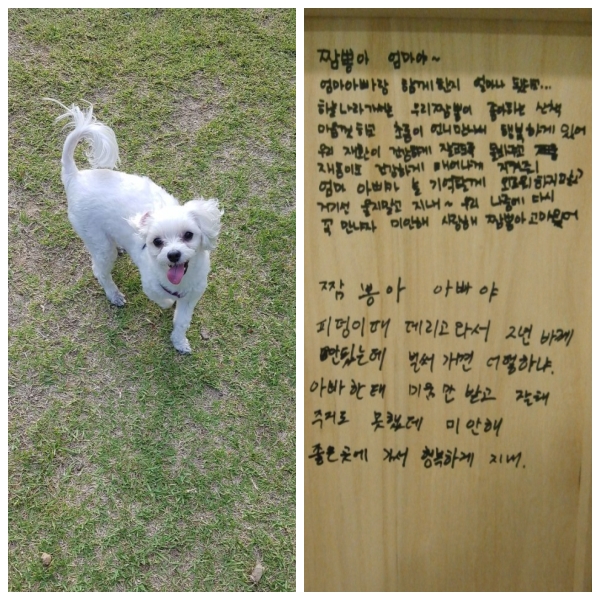 짬뽕아 엄마야~
엄마아빠랑 함께한지 얼마나
하늘나라가서는 우리짬뽕이 좋아하는 산책
마음껏하고 초롱이 언니만나서 행복하게 있어
우리 재환이 건강하게
재롱이도 건강하게 태어나게 지켜주고
엄마 아빠가 늘 기억할게 외로워하지말고
거기선 울지말고 지내~ 우리 나중에 다시
꼭 만나자 미안해 사랑해 짬뽕아고마웠어
짬뽕아 아빠야
피덩이때 데리고와서 2년 밖에
안됐는데 벌써 가면 어떨하냐.
아빠한테 미움만 받고 잘해
주지도 못했는데 미안해
좋은곳에 가서 행복하게 지내.